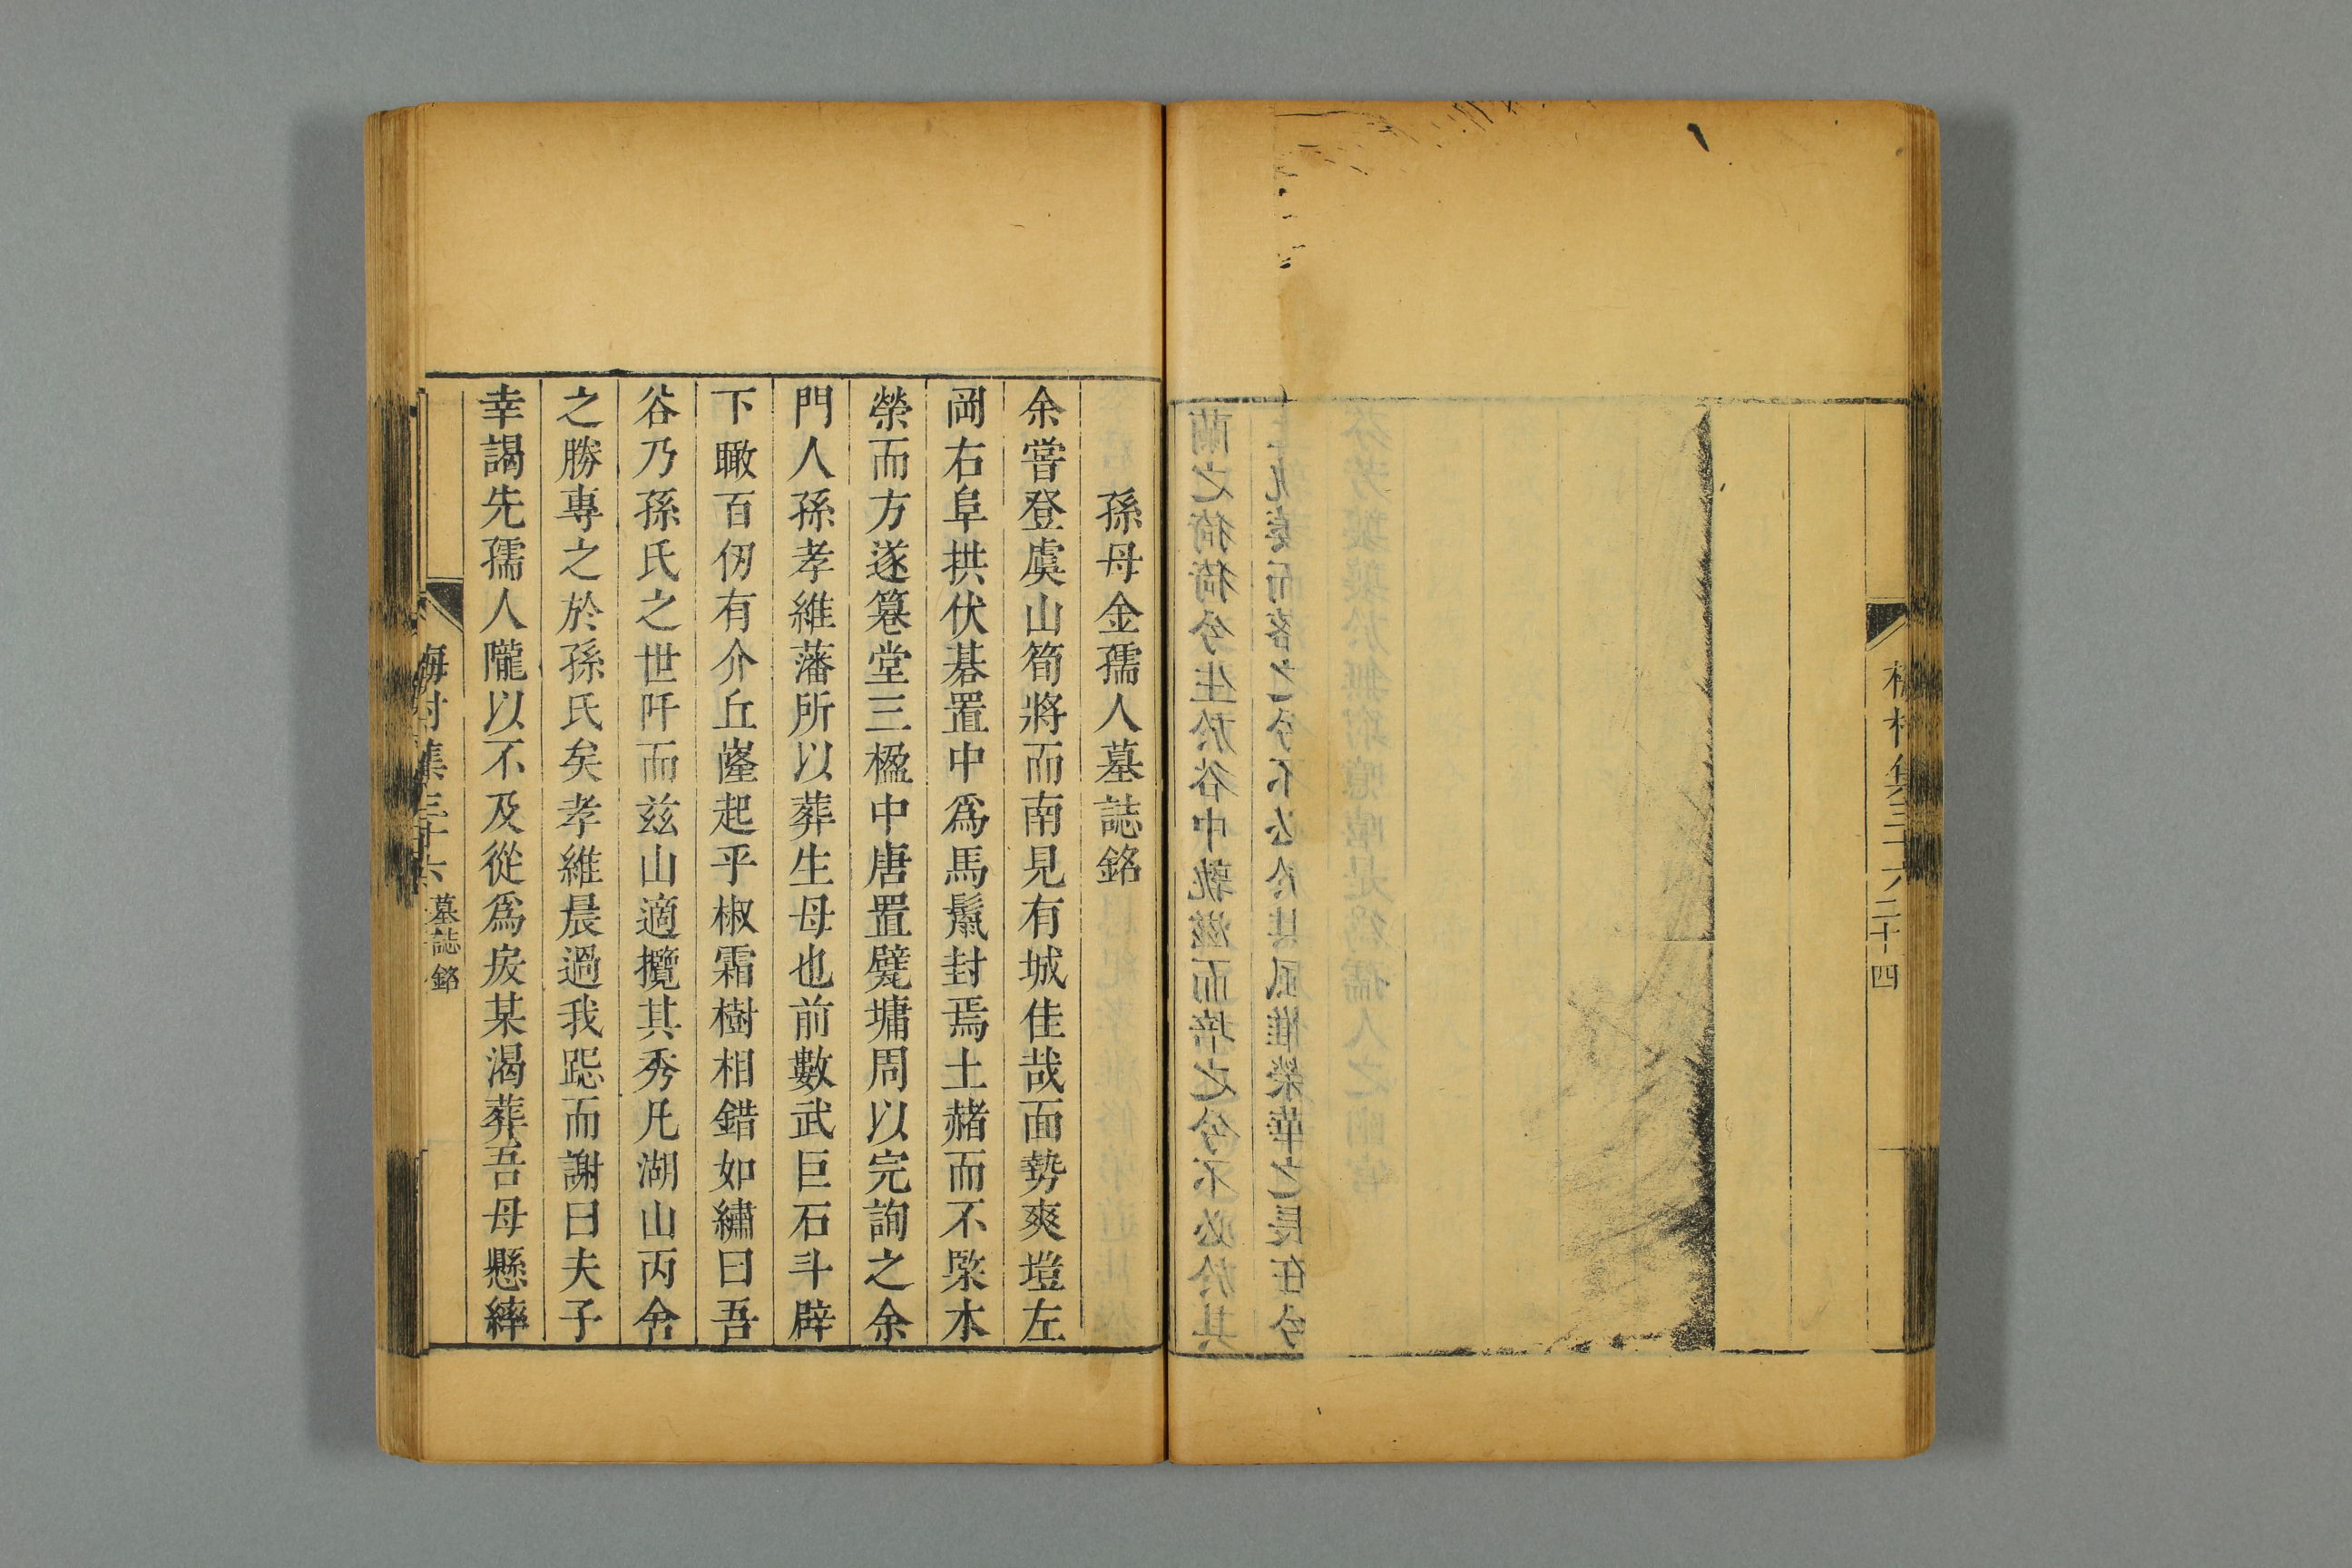 梅村集三十六 三十四
孫母金孺人墓誌銘
余嘗登虞山筍將而南見有城佳哉面勢爽塏左
岡右阜拱伏碁置中爲馬鬣封焉土赭而不檿木
榮而方遂篹堂三楹中唐置甓墉周以完詢之余
門人孫孝維藩所以葬生母也前數武巨石斗辟
下瞰百仞有介丘嶐起乎椒霜樹相錯如繡曰吾
谷乃孫氏之世阡而兹山適攬其秀凡湖山丙舍
之勝專之於孫氏矣孝維晨過我跽而謝曰夫子
幸謁先孺人隴以不及從爲戾某渴葬吾母懸繂
梅村集三十六 墓誌銘